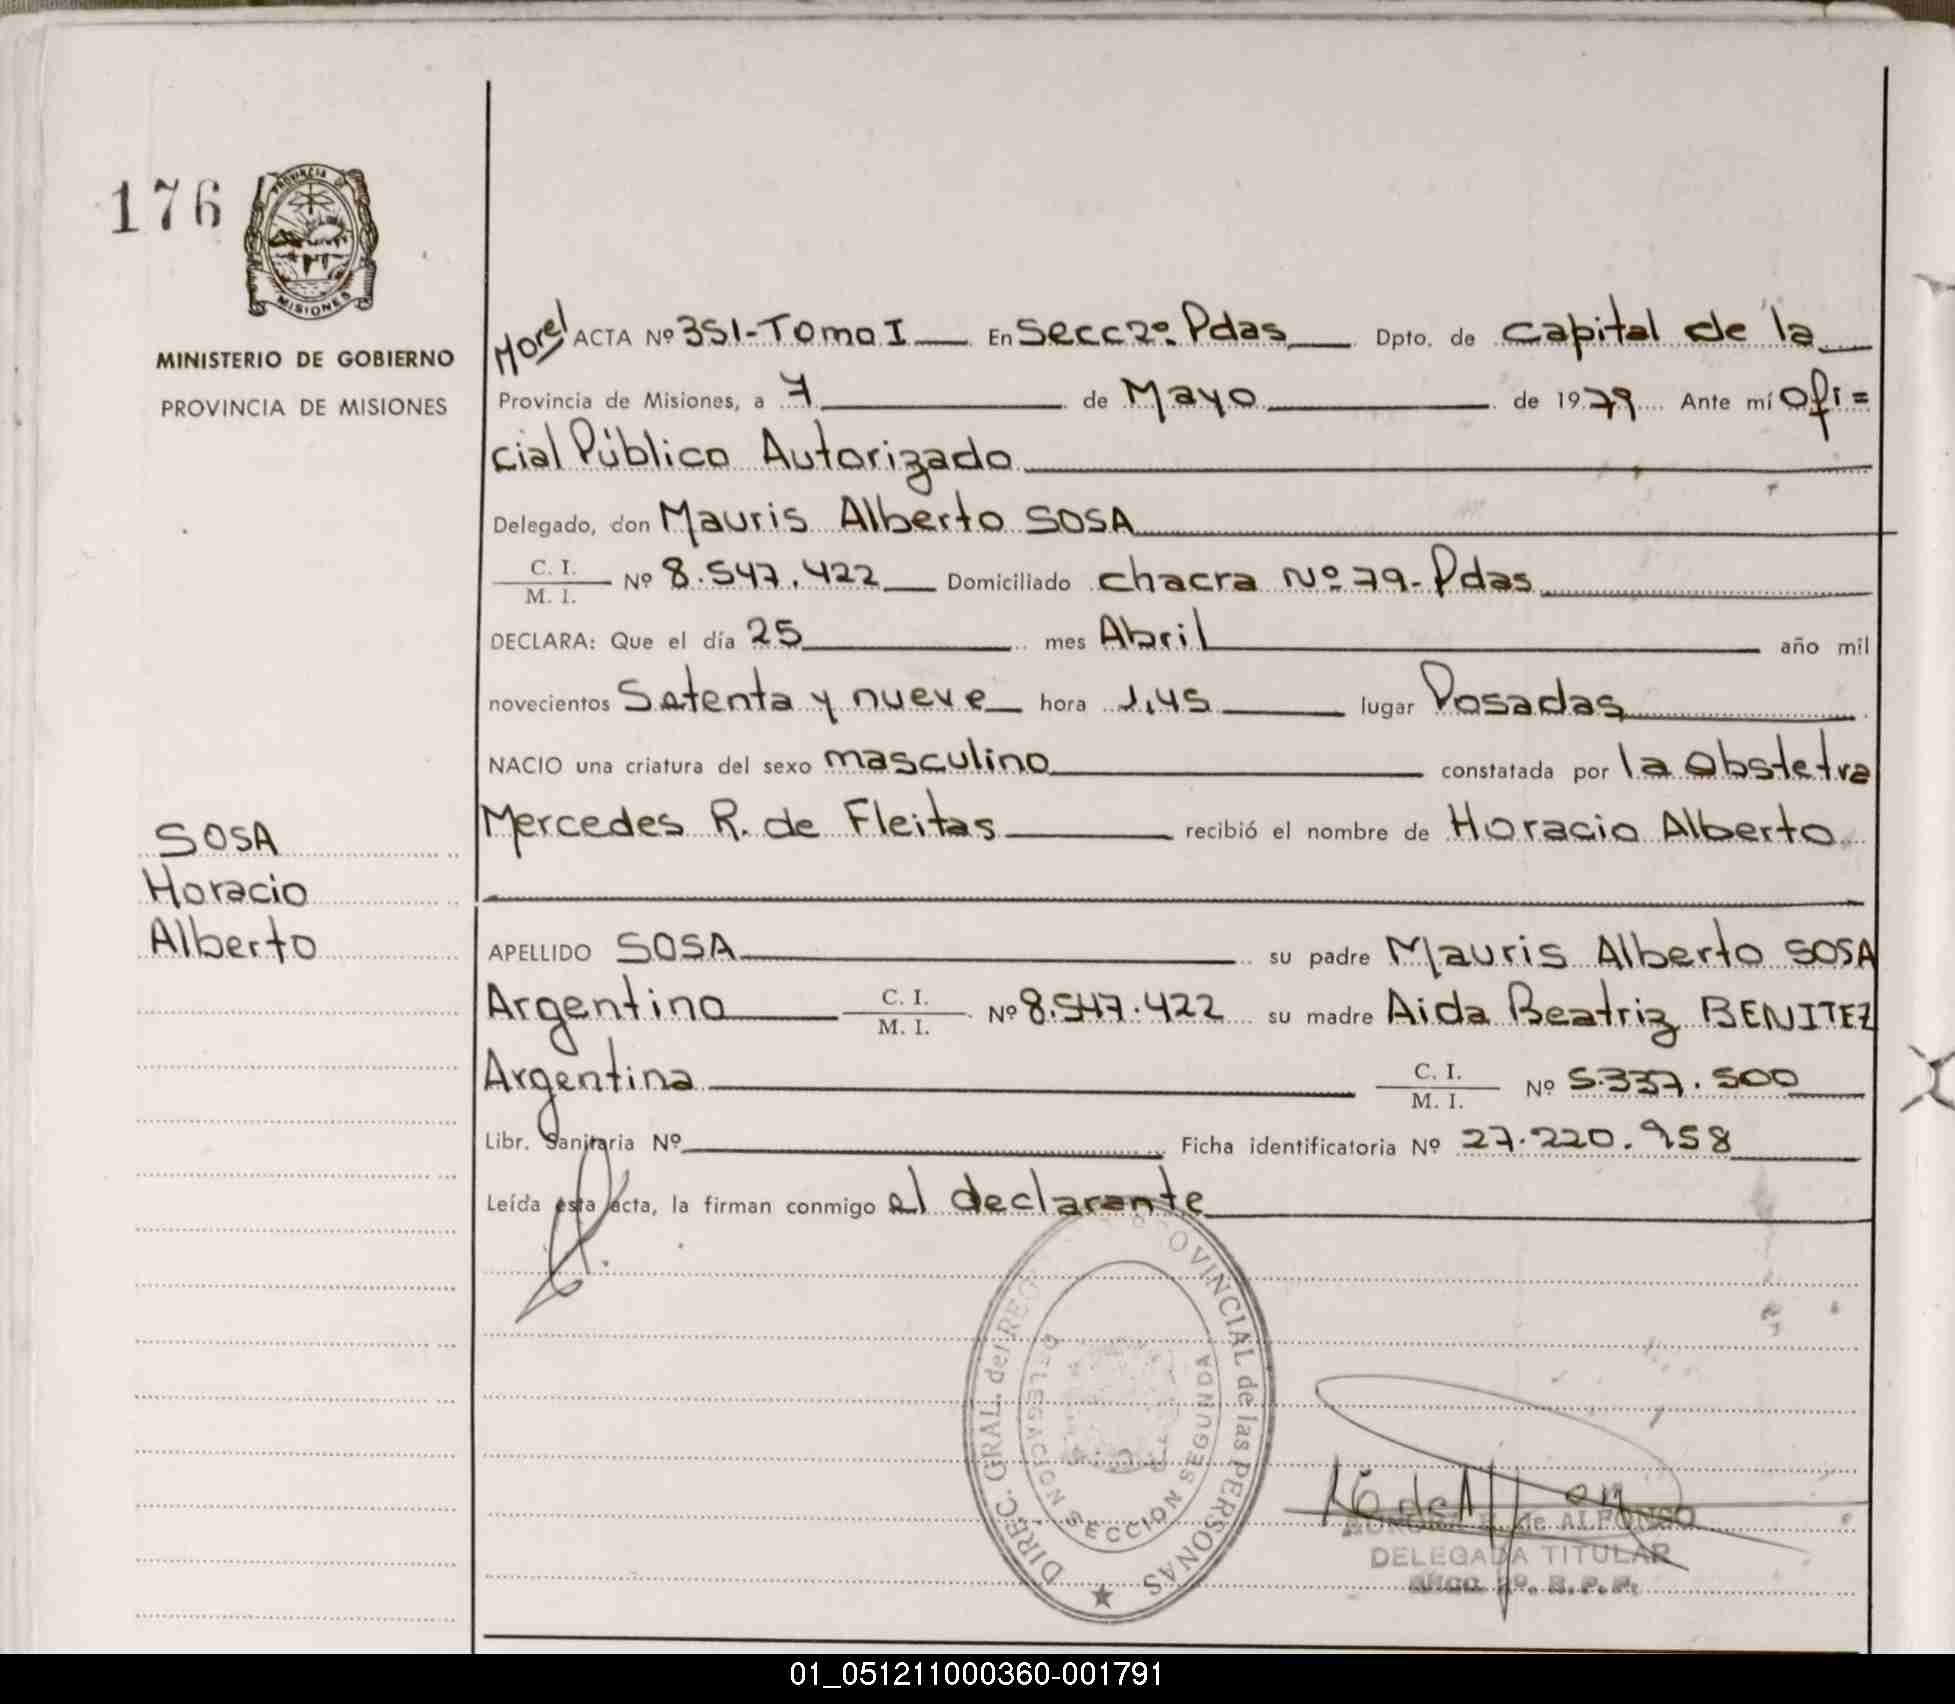 176
PROVINCIA DE
MISIONES
MINISTERIO DE GOBIERNO
PROVINCIA DE MISIONES
SOSA
Horacio
Alberto
Morel ACTA Nº 351-Tomo I En Secc 2º. Pdas Dpto. de Capital de la
Provincia de Misiones, a 7 de Mayo de 1979 Ante mí Ofi=
cial Público Autorizado
Delegado, don Mauris Alberto SOSA
C. I.
M. I. Nº 8.547.422 Domiciliado chacra Nº 79-Pdas
DECLARA: Que el día 25 mes Abril año mil
novecientos Setenta y nueve hora 1,45 lugar Posadas
NACIO una criatura del sexo masculino constatada por la Obstetra
Mercedes R. de Fleitas recibió el nombre de Horacio Alberto
APELLIDO SOSA su padre Mauris Alberto SOSA
Argentino C. I. M. I. Nº 8.547.422 su madre Aida Beatriz BENITEZ
Argentina C. I. M. I. Nº 5.337.500
Libr. Sanitaria Nº Ficha identificatoria Nº 27.220.958
Leída esta acta, la firman conmigo el declarante
DIREC. GRAL. del REG PROVINCIAL de las PERSONAS
DELEGACION SECCION SEGUNDA
de ALFONSO
DELEGADA TITULAR
Secc. 2º. R. P. P.
01_051211000360-001791